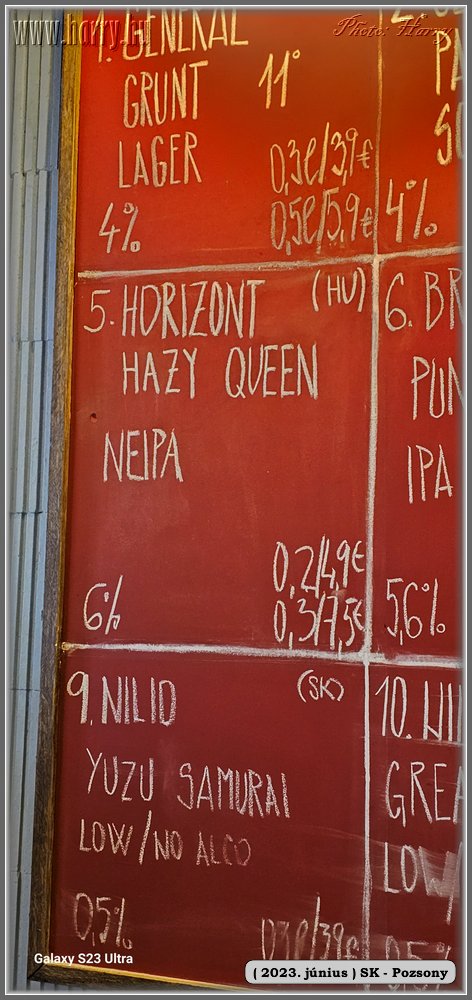 www.harry.hu
Photo: Harry
1. GENERAL
GRUNT
LAGER
11°
0,3l/3,9€
0,5l/5,9€
4%
2.
4%
5. HORIZONT (HU)
HAZY QUEEN
NEIPA
0,2/4,9€
0,3/7,5€
6%
6. BR
PUN
IPA
5,6%
9. NILIO (SK)
YUZU SAMURAI
LOW/NO ALCO
0,5%
0,3l/3,9€
10. NIL
GREA
LOW/
0,5%
Galaxy S23 Ultra
( 2023. június ) SK - Pozsony